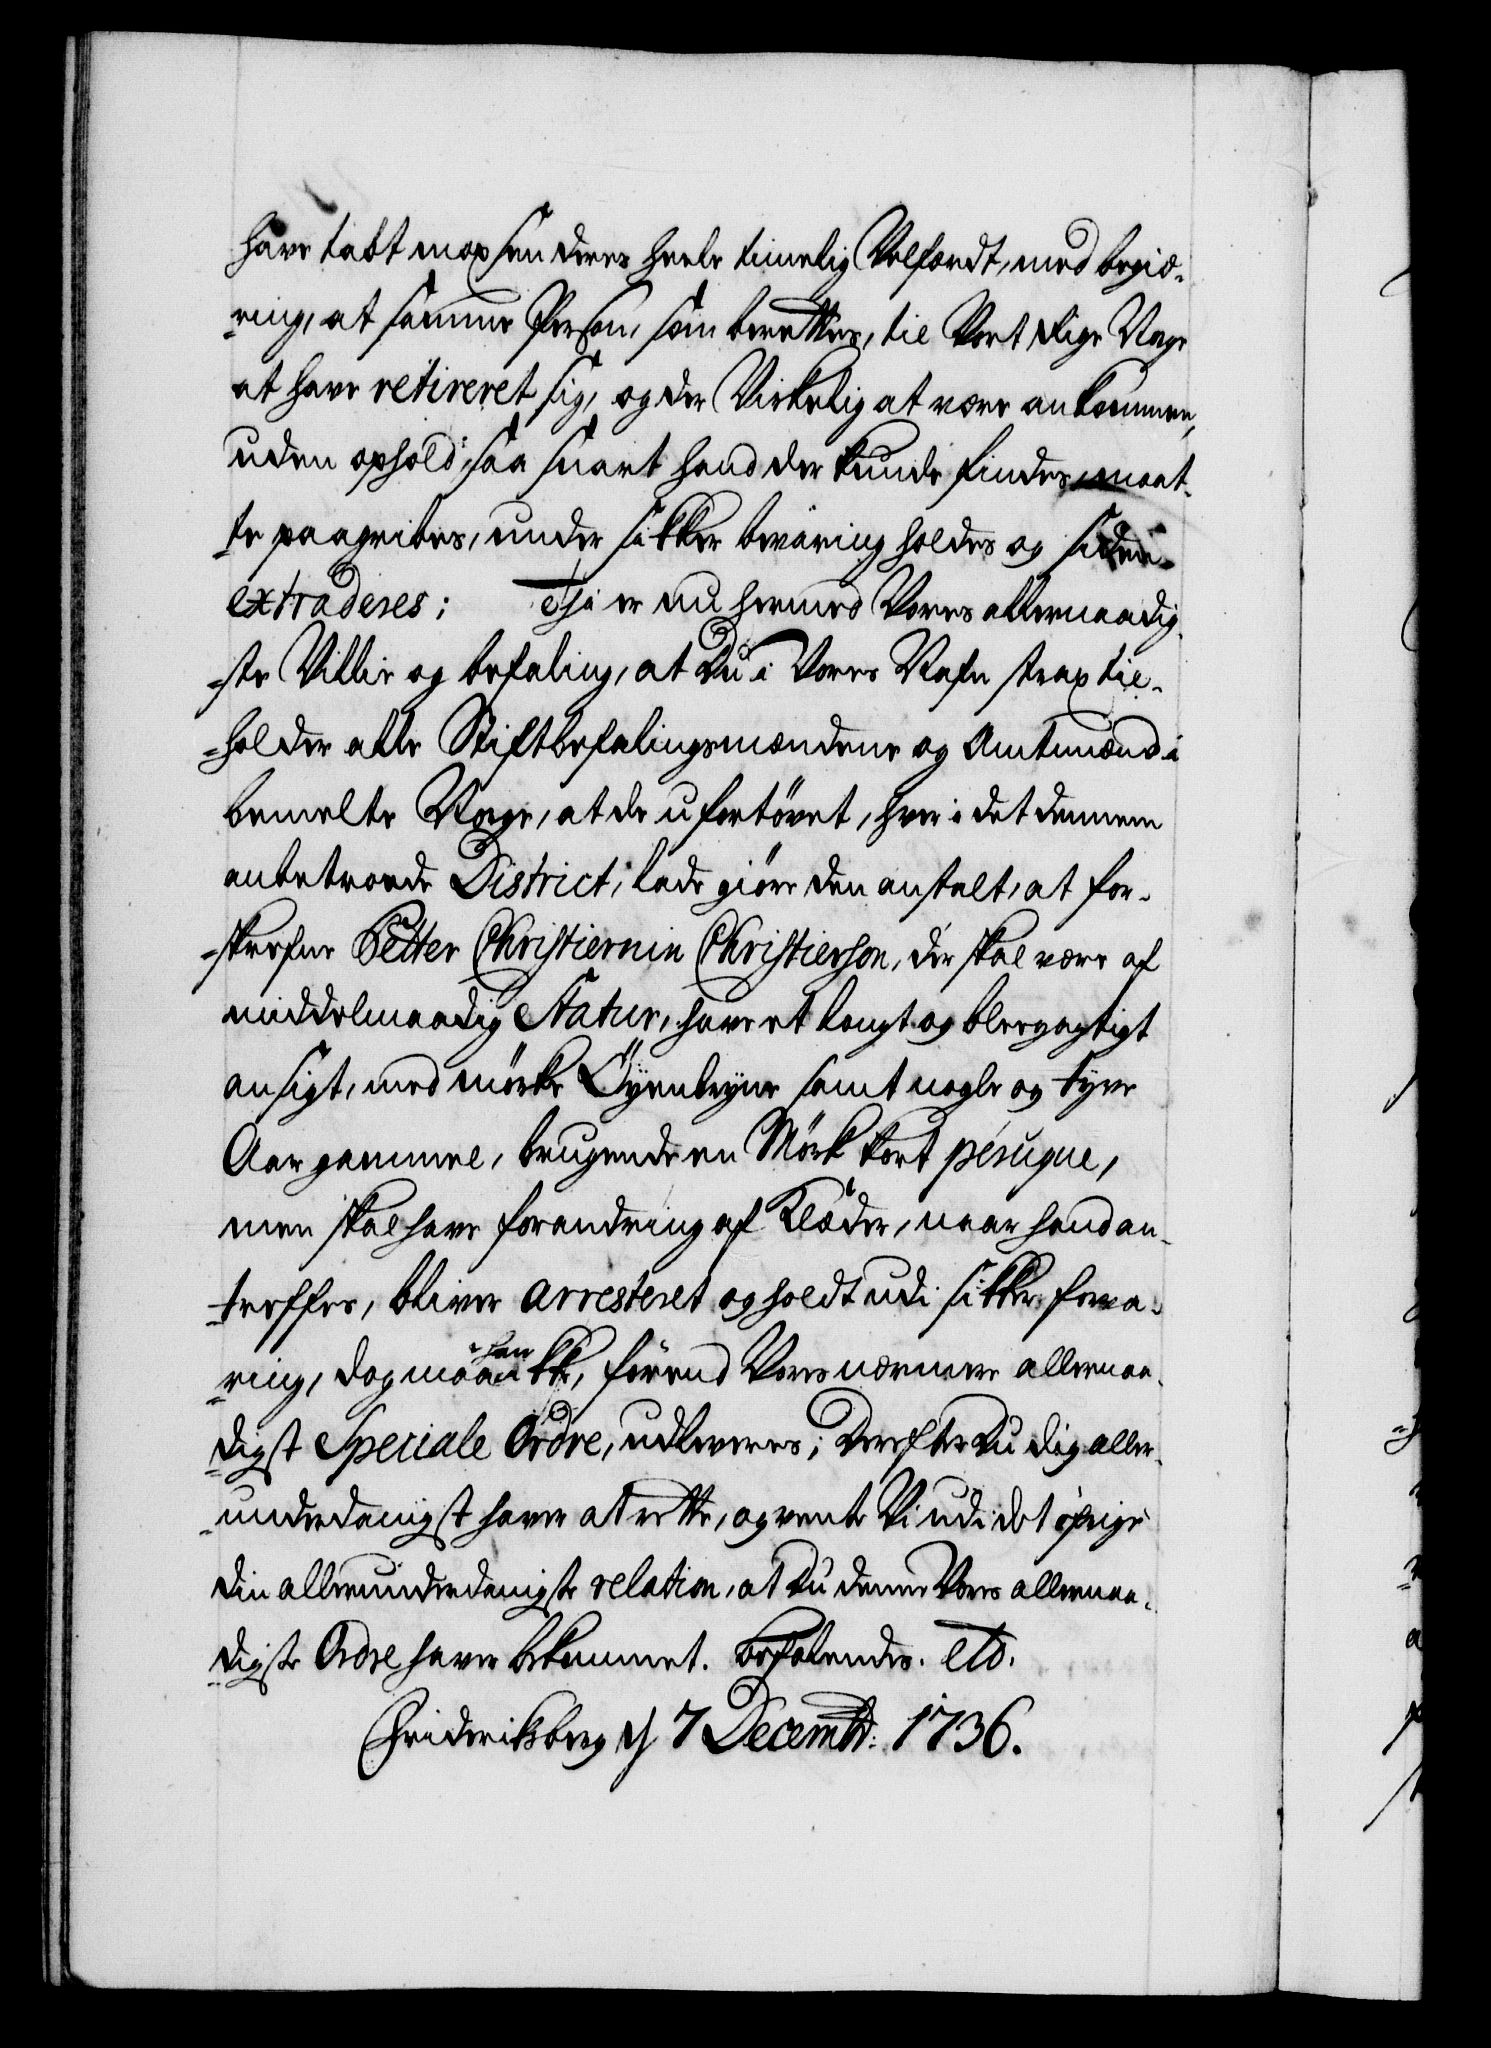 have tabt mox sen deres heele timelig Velfærdt, med begiæ-
-ring, at samme Person, som berettes, til Vort Rige Norge
at have retireret sig, og der Virkelig at være ankommen,
uden ophold, saa snart hand der kunde findes, maat-
te paagribes, under sikker bevaring holdes og siden
extraderes; Thi er nu hermed Vores allernaadig-
-ste Villie og befaling, at Du i Vores Nafn strax til-
-holder alle Stiftbefalingsmændene og Amtmænd i
bemelte Norge, at de ufortövet, hver i det dennem
anbetroede District, lade giöre den anstalt, at for-
-skrefne Petter Christiernin Christierson, der skal være af
middelmaadig Statur, have et langt og blegagtigt
ansigt, med mörke Öyenbryne samt nogle og tyve
Aar gammel, brugende en Mörk kort péruque,
men skal have forandring af Klæder, naar hand an-
-treffes, bliver arresteret og holdt udi sikker forva-
-ring, dog maae han ikke, förend Vores nærmere allernaa-
digst Speciale Ordre, udleveres; Derefter Du dig aller-
-underdanigst haver at rette, og vente Vi udi det öfrige
din allerunderdanigste relation, at Du denne Vores allernaa-
digste Ordre haver bekommet. Befalendes. etc.
Friderichsberg d 7 Decembr: 1736.